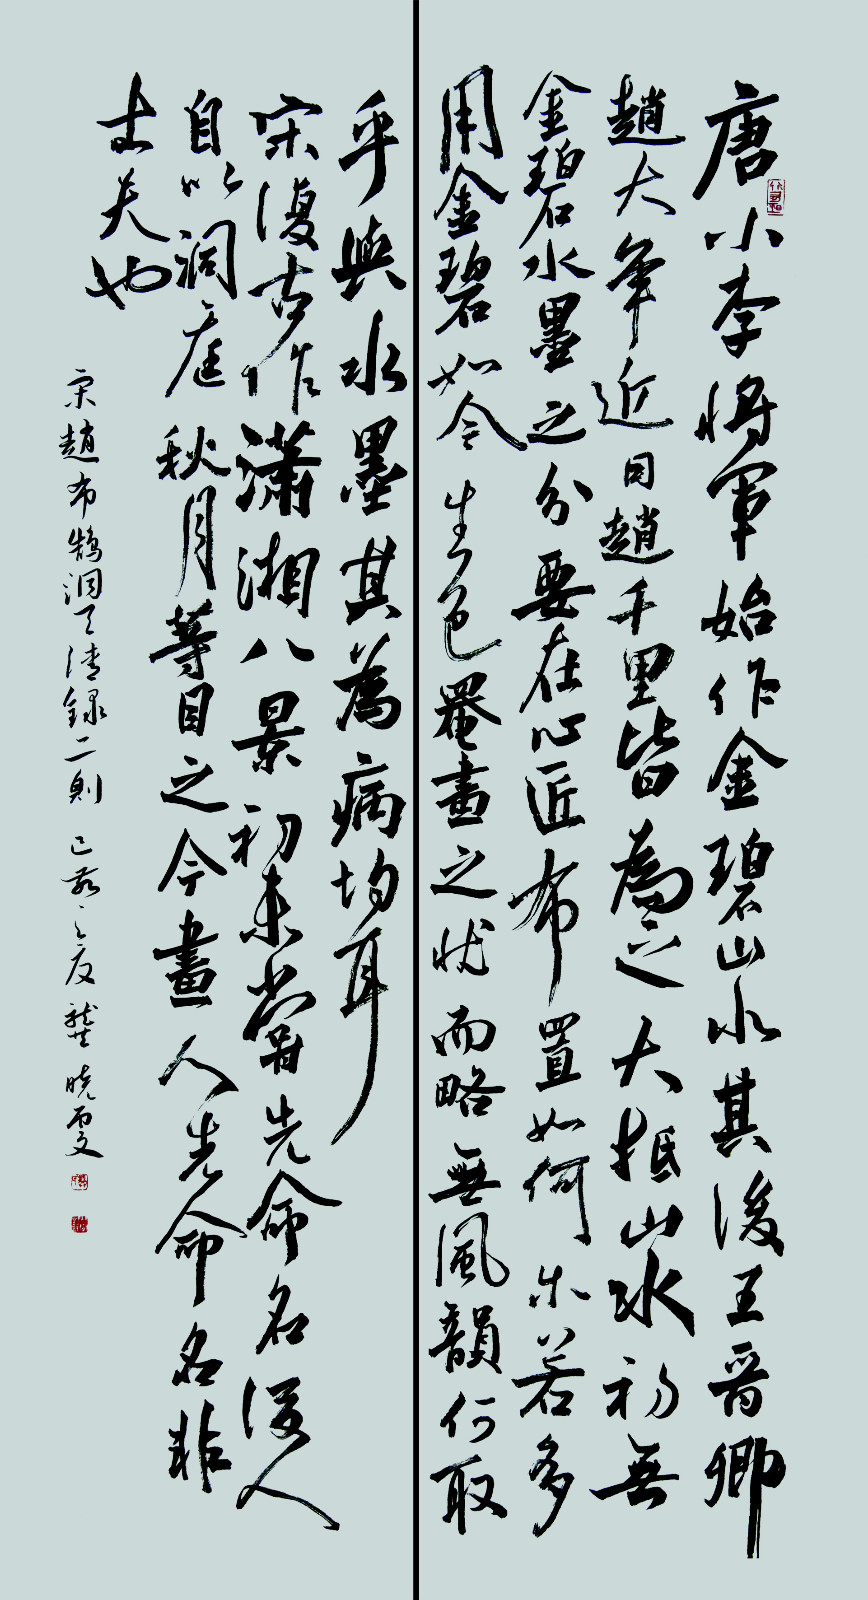 唐小李将軍始作金碧山水其後王晉卿
趙大年近日趙千里皆為之大抵山水初無
金碧水墨之分要在心匠布置如何尔若多
用金碧如今生色罨畫之狀而略無風韻何取
乎與水墨其為病均耳
宋復古作瀟湘八景初未嘗先命名後人
自以洞庭秋月等目之今畫人先命名非
士夫也
宋趙希鵠洞天清錄二則 己亥之夏 龔晓雯